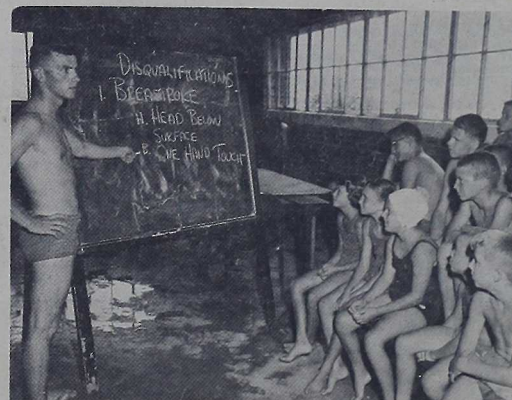 DISQUALIFICATIONS
1. BREASTROKE
A. HEAD BELOW
SURFACE
B. ONE HAND TOUCH